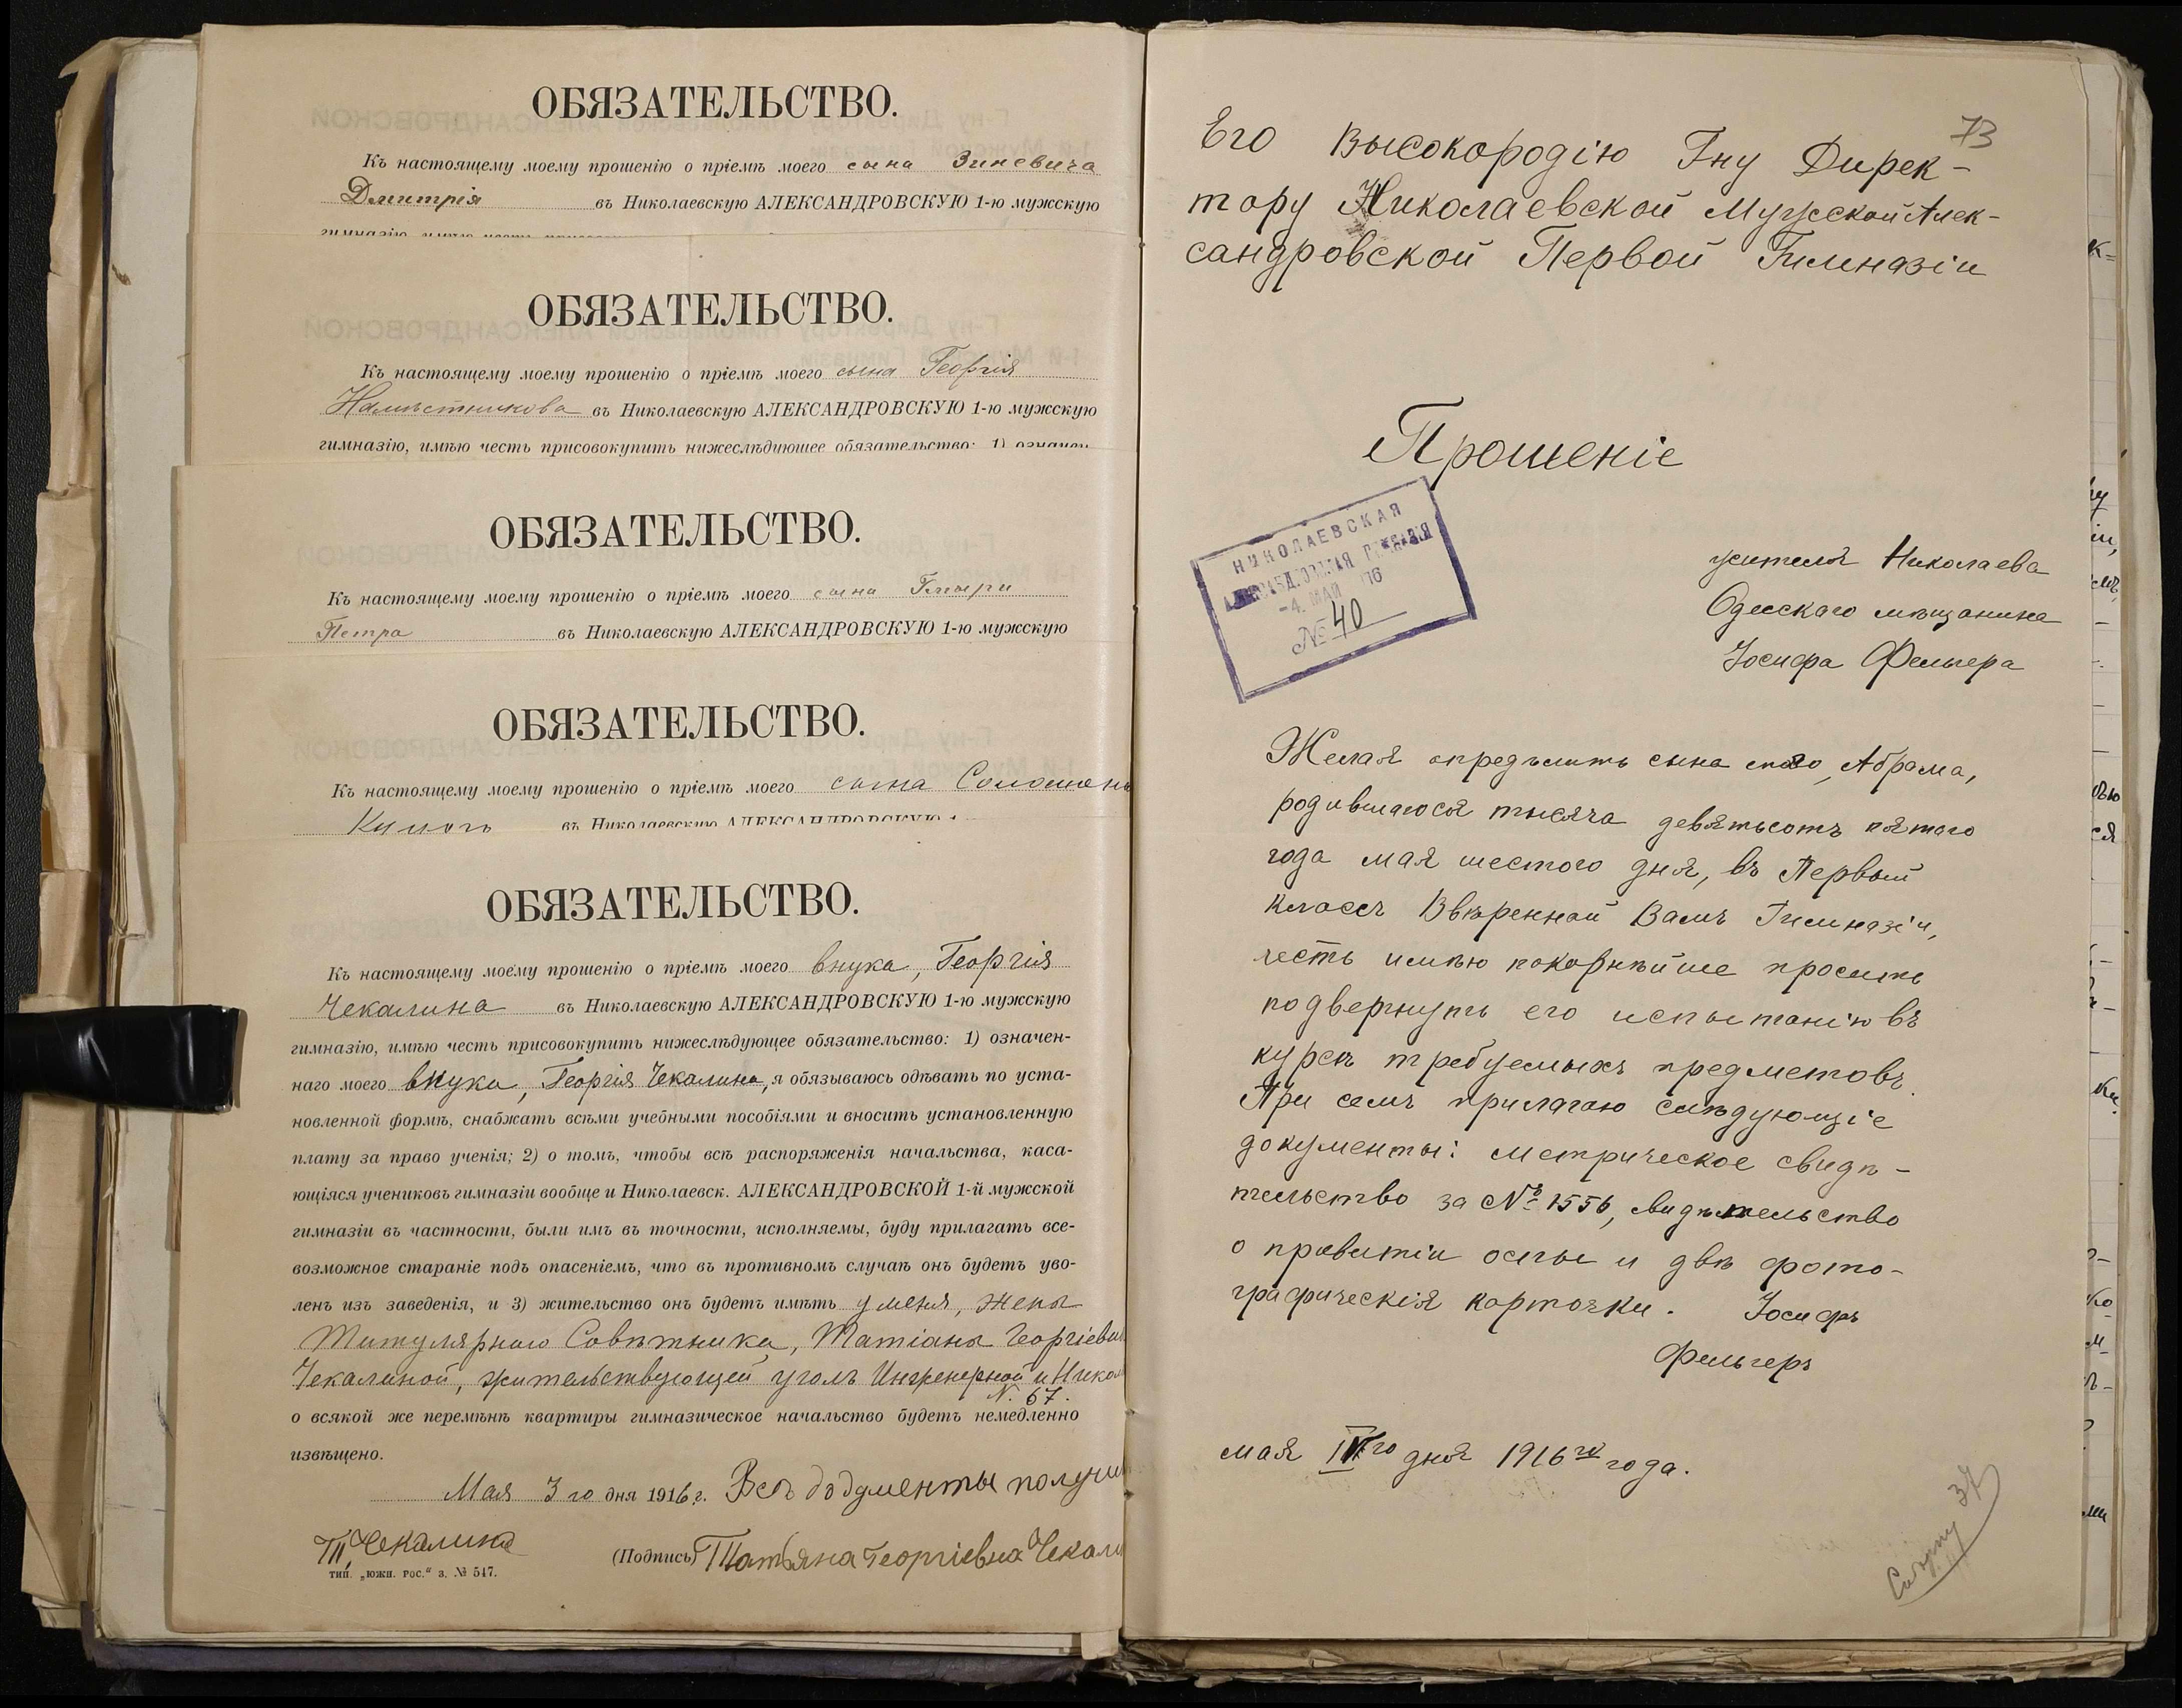 ОБЯЗАТЕЛЬСТВО.
Къ настоящему моему прошенію о пріемѣ моего сына Зиневича
Дмитрія въ Николаевскую АЛЕКСАНДРОВСКУЮ 1-ю мужскую
ОБЯЗАТЕЛЬСТВО.
Къ настоящему моему прошенію о пріемѣ моего сына Георгія
Намѣстникова въ Николаевскую АЛЕКСАНДРОВСКУЮ 1-ю мужскую
гимназію, имѣю честь присовокупить нижеслѣдующее обязательство: 1) означен-
ОБЯЗАТЕЛЬСТВО.
Къ настоящему моему прошенію о пріемѣ моего сына Гмыри
Петра въ Николаевскую АЛЕКСАНДРОВСКУЮ 1-ю мужскую
ОБЯЗАТЕЛЬСТВО.
Къ настоящему моему прошенію о пріемѣ моего сына
въ Николаевскую АЛЕКСАНДРОВСКУЮ
ОБЯЗАТЕЛЬСТВО.
Къ настоящему моему прошенію о пріемѣ моего внука, Георгія
Чекалина въ Николаевскую АЛЕКСАНДРОВСКУЮ 1-ю мужскую
гимназію, имѣю честь присовокупить нижеслѣдующее обязательство: 1) означен-
наго моего внука, Георгія Чекалина, я обязываюсь одѣвать по уста-
новленной формѣ, снабжать всѣми учебными пособіями и вносить установленную
плату за право ученія; 2) о томъ, чтобы всѣ распоряженія начальства, каса-
ющіяся учениковъ гимназіи вообще и Николаевск. АЛЕКСАНДРОВСКОЙ 1-й мужской
гимназіи въ частности, были имъ въ точности, исполняемы, буду прилагать все-
возможное стараніе подъ опасеніемъ, что въ противномъ случаѣ онъ будетъ уво-
ленъ изъ заведенія, и 3) жительство онъ будетъ имѣть у меня, жены
Титулярнаго Совѣтника, Татіаны Георгіевн
Чекалиной, жительствующей уголъ Инженерной и Никол
N. 67.
о всякой же перемѣнѣ квартиры гимназическое начальство будетъ немедленно
извѣщено.
Мая 3 го дня 1916 г. Всѣ додументы получил
Т. Чекалина (Подпись) Татьяна Георгіевна Чекали
тип. „южн. рос.“ з. № 547.
73
Его Высокородію Гну Дирек-
тору Николаевской Мужской Алек-
сандровской Первой Гимназіи
Прошеніе
НИКОЛАЕВСКАЯ
АЛЕКСАНДРОВСКАЯ ГИМНАЗІЯ
-4. МАЙ 916
№ 40
жителя Николаева
Одесскаго мѣщанина
Іосифа Фельгера
Желая опредѣлить сына моего, Абрама,
родившагося тысяча девятьсотъ пятого
года мая шестого дня, въ Первый
классъ Ввѣренной Вамъ Гимназіи,
честь имѣю покорнѣйше просить
подвергнуть его испытанію въ
курсѣ требуемыхъ предметовъ.
При семъ прилагаю слѣдующіе
документы: метрическое свидѣ-
тельство за № 1556, свидѣтельство
о привитіи оспы и двѣ фото-
графическія карточки. Іосифъ
Фельгеръ
мая IVго дня 1916го года.